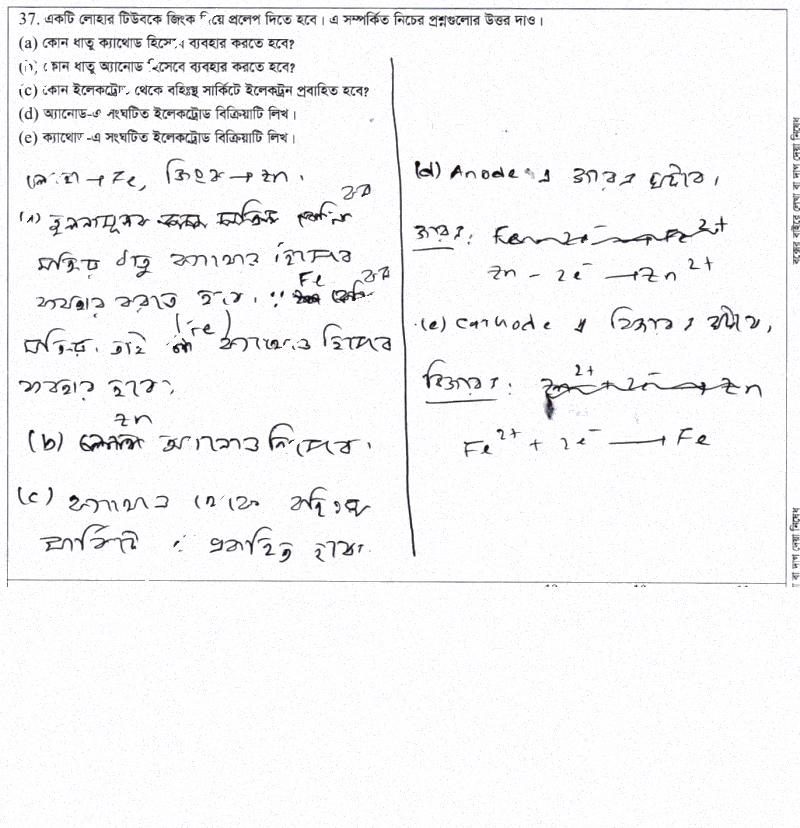 37. একটি লোহার টিউবকে জিংক দিয়ে প্রলেপ দিতে হবে। এ সম্পর্কিত নিচের প্রশ্নগুলোর উত্তর দাও।
(a) কোন ধাতু ক্যাথোড হিসেবে ব্যবহার করতে হবে?
(b) কোন ধাতু অ্যানোড হিসেবে ব্যবহার করতে হবে?
(c) কোন ইলেকট্রোড থেকে বহিঃস্থ সার্কিটে ইলেকট্রন প্রবাহিত হবে?
(d) অ্যানোড-এ সংঘটিত ইলেকট্রোড বিক্রিয়াটি লিখ।
(e) ক্যাথোড-এ সংঘটিত ইলেকট্রোড বিক্রিয়াটি লিখ।
লোহা → Fe, জিংক → Zn.
(a) তুলনামূলক কম
সক্রিয় ধাতু ক্যাথোড হিসেবে
ব্যবহার করতে হবে। ∵ Fe কম
সক্রিয়. তাই (Fe) ক্যাথোড হিসেবে
ব্যবহার হবে।
(b) Zn অ্যানোড হিসেবে।
(c) ক্যাথোড থেকে বহিঃস্থ
সার্কিটে প্রবাহিত হবে।
(d) Anode এ জারণ ঘটবে।
জারণ: Zn - 2e⁻ → Zn²⁺
(e) Cathode এ বিজারণ ঘটবে,
বিজারণ:
Fe²⁺ + 2e⁻ → Fe